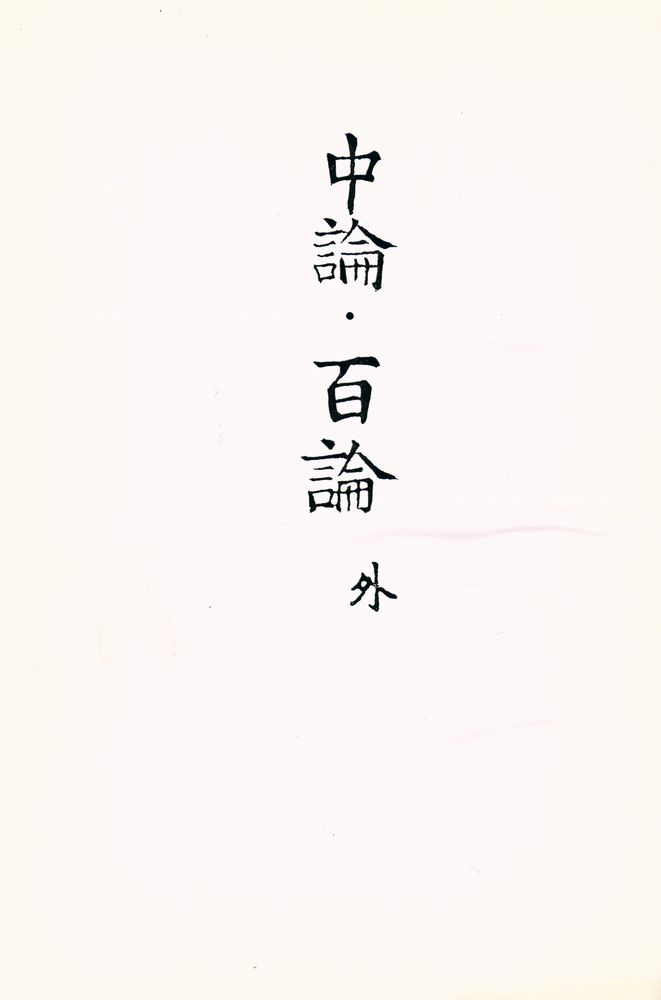 中論・百論
外